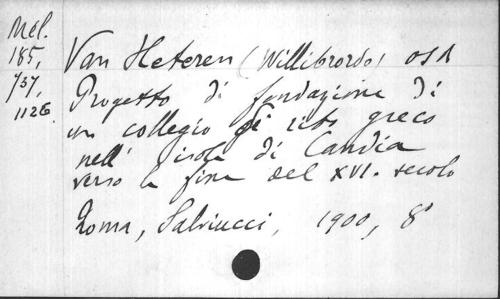 Mél.
185,
737,
1126
Van Heteren (Willibrordo) OSA
Progetto di fondazione di
un collegio di rito greco
nell' isola di Candia
verso la fine del XVI. secolo
Roma, Salviucci, 1900, 8°